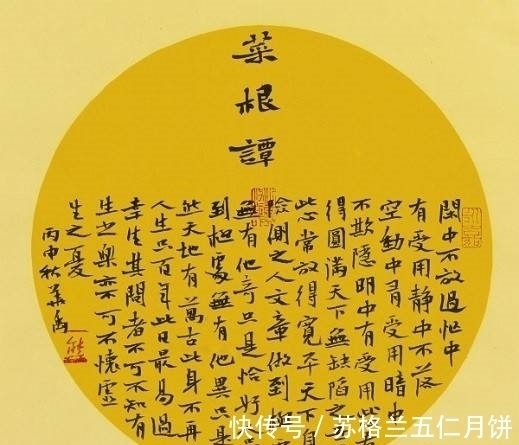 菜根譚
閑中不放過忙中
有受用静中不落
空動中有受用暗中
不欺隱明中有受用
得圓滿天下無缺陷之
此心常放得寬平天下
險側之人文章做到
無有他奇只是恰好
到極處無有他異只是
然天地有萬古此身不再
人生只百年此日最易過
幸生其間者不可不知有
生之樂亦不可不懷虛
生之憂
丙申秋
快传号 / 苏格兰五仁月饼